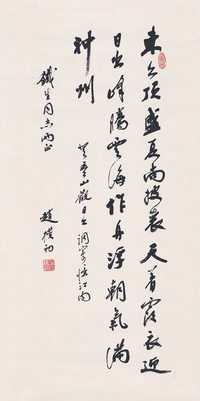 頂盛夏尚披裘天著霞衣迎
日出峰騰雲海作舟浮朝氣滿
神州
山觀日出 調寄憶江南
鐵生同志兩正
趙樸初